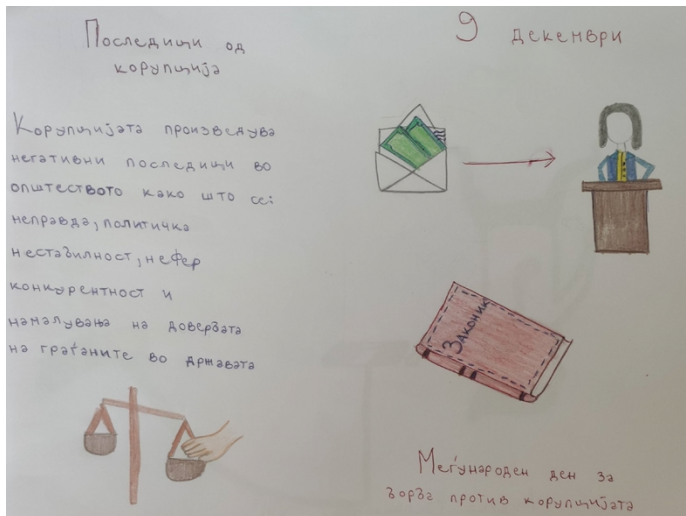 Последици од
корупција
Корупцијата произведува
негативни последици во
општеството како што се:
неправда, политичка
нестабилност, нефер
конкурентност и
намалувања на довербата
на граѓаните во државата
9 декември
Законик
Меѓународен ден за
борба против корупцијата